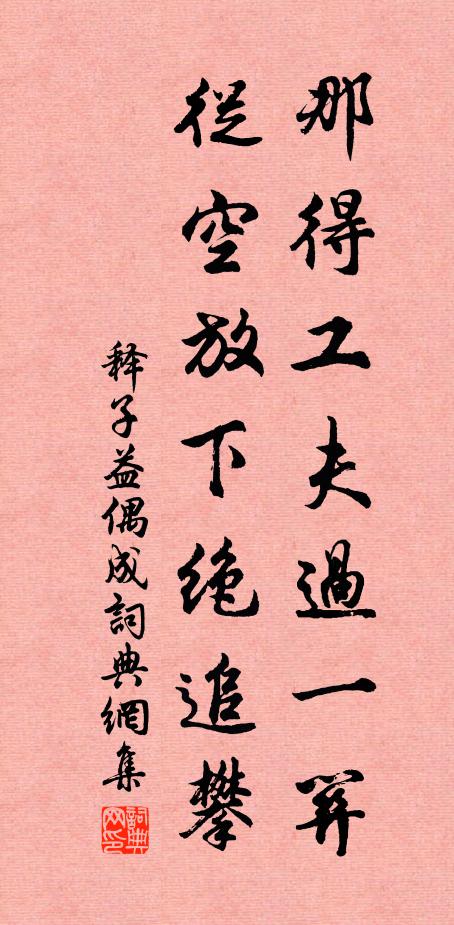 那得工夫過一
從空放下絶追攀
释子益偶成詞典網集
詞典网印